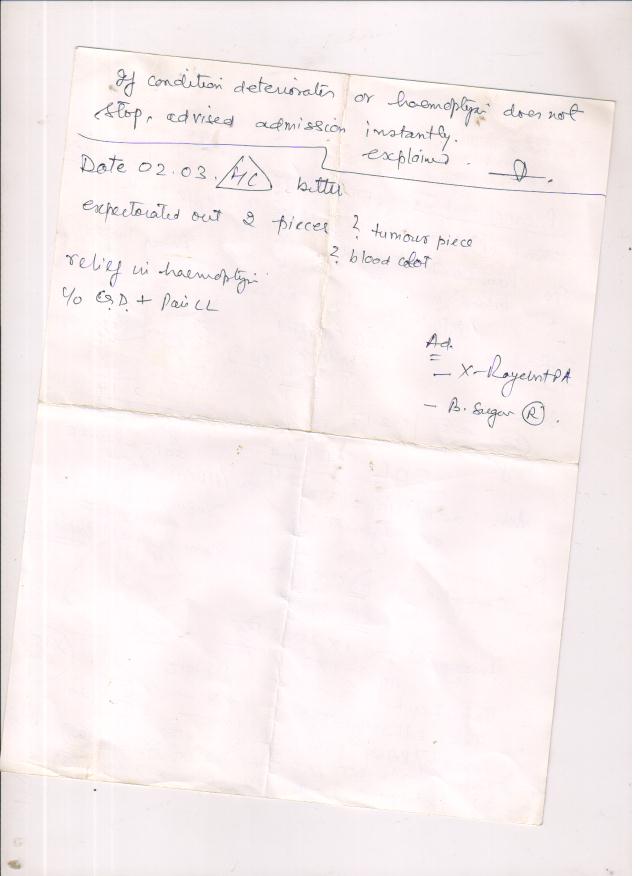 If condition deteriorates or haemoptysi does not
stop, advised admission instantly.
explained.
Date 02.03. HC better
expectorated out 2 pieces ? tumour piece
? blood clot
relief in haemoptysi
c/o + Pain LL
Ad.
- X-Ray chest PA
- B. Sugar (R).